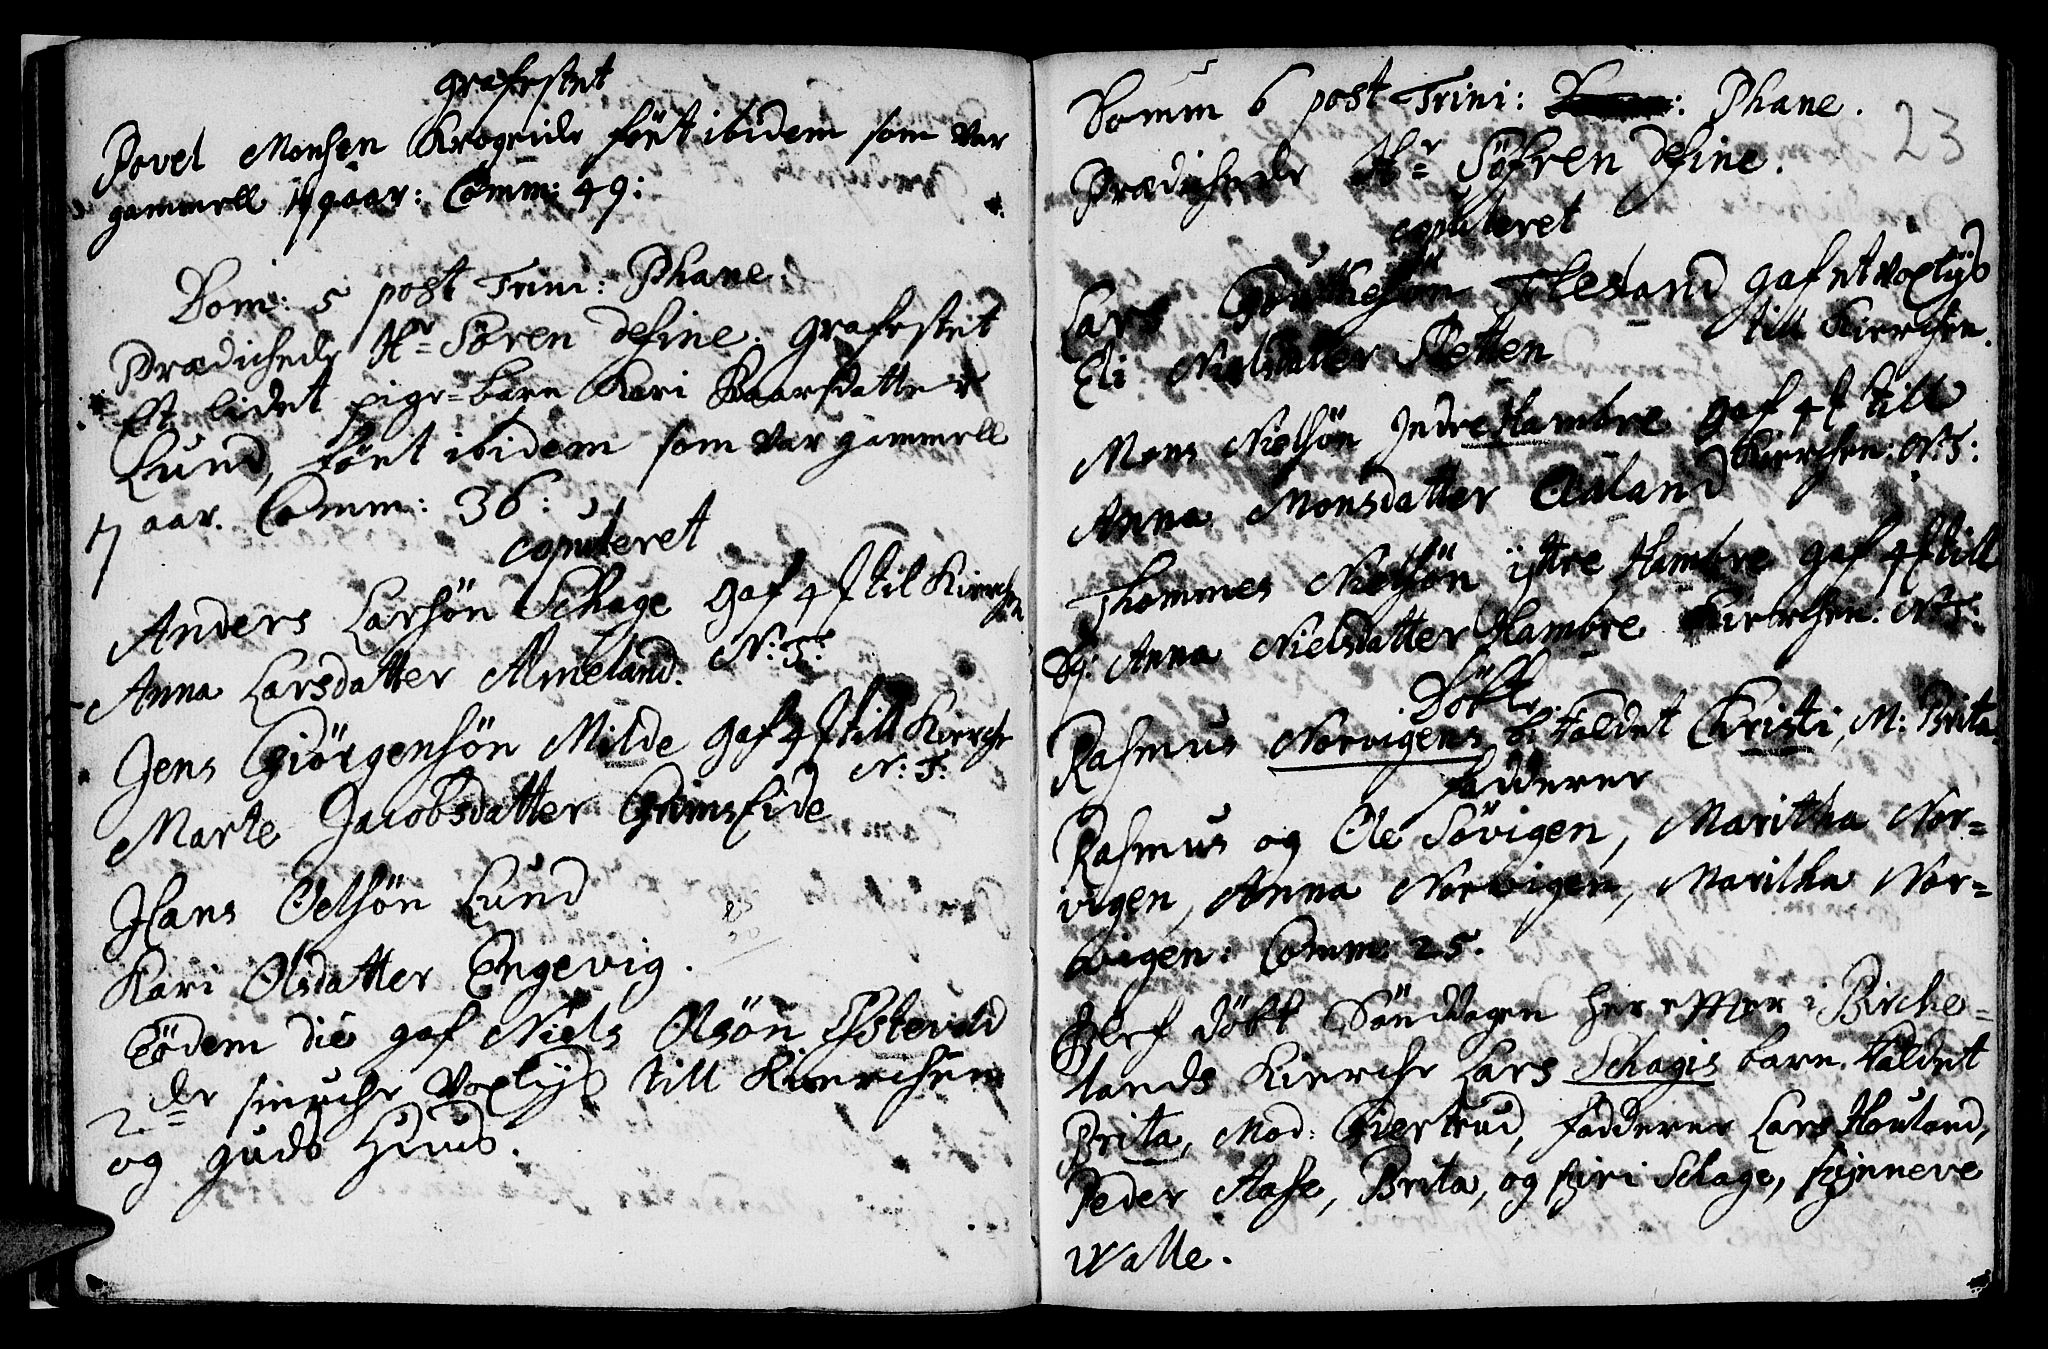 grafestet
Povel Monsen Krogeide föet ibidem som var
gammell aar: Comm: 49:
Dom: 5 post Trini: Phane:
Prædichede Hr Sören define. grafestet
Et lidet pige-barn Kari Baarsdatter
Lund, föet ibidem som var gammell
7 aar. Comm: 36:
copuleret
Anders Larsön Schage gaf 4 til Kierchen
Anna Larsdatter Almeland. N: 3:
Jens Giörgensön Milde gaf 4 till Kierche
Marte Jacobsdatter Grimseide N: 3:
Hans Oelsön Lund
Kari Olsdatter Engevig.
Eödem die gaf Niels Olsön Östervold
2de smuche voxlÿs till Kierchen
og guds Huus.
23
Domin 6 post Trini: Phane.
Prædichede Hr Söfren define.
copuleret
Lars Flesland gaf et voxlÿs
Eli Nielsdatter Sletten till Kierchen.
Mons Nielsön Indre Hambre gaf 4 till
Anna Monsdatter Aaland Kierchen: N: 3:
Thommes Nielsön ÿttre Hambre gaf 4 till
Anna Nielsdatter Hambre Kierchen: N: 3:
Döbt
Rasmus Norvigens b: kaldet Christi, M: Brita.
fadderer
Rasmus og Ole Sövigen, Maritha Nor=
vigen, Anna Norvigen, Maritha Nor=
vigen: Comm: 25.
Blef döbt Söndagen her effter i Birche=
lands Kierche Lars Schagis barn. kaldet
Brita, Mod: Giertrud, fadderer Lars Houland,
Peder Aase, Brita, og siri Schage, sÿnneve
Walle.